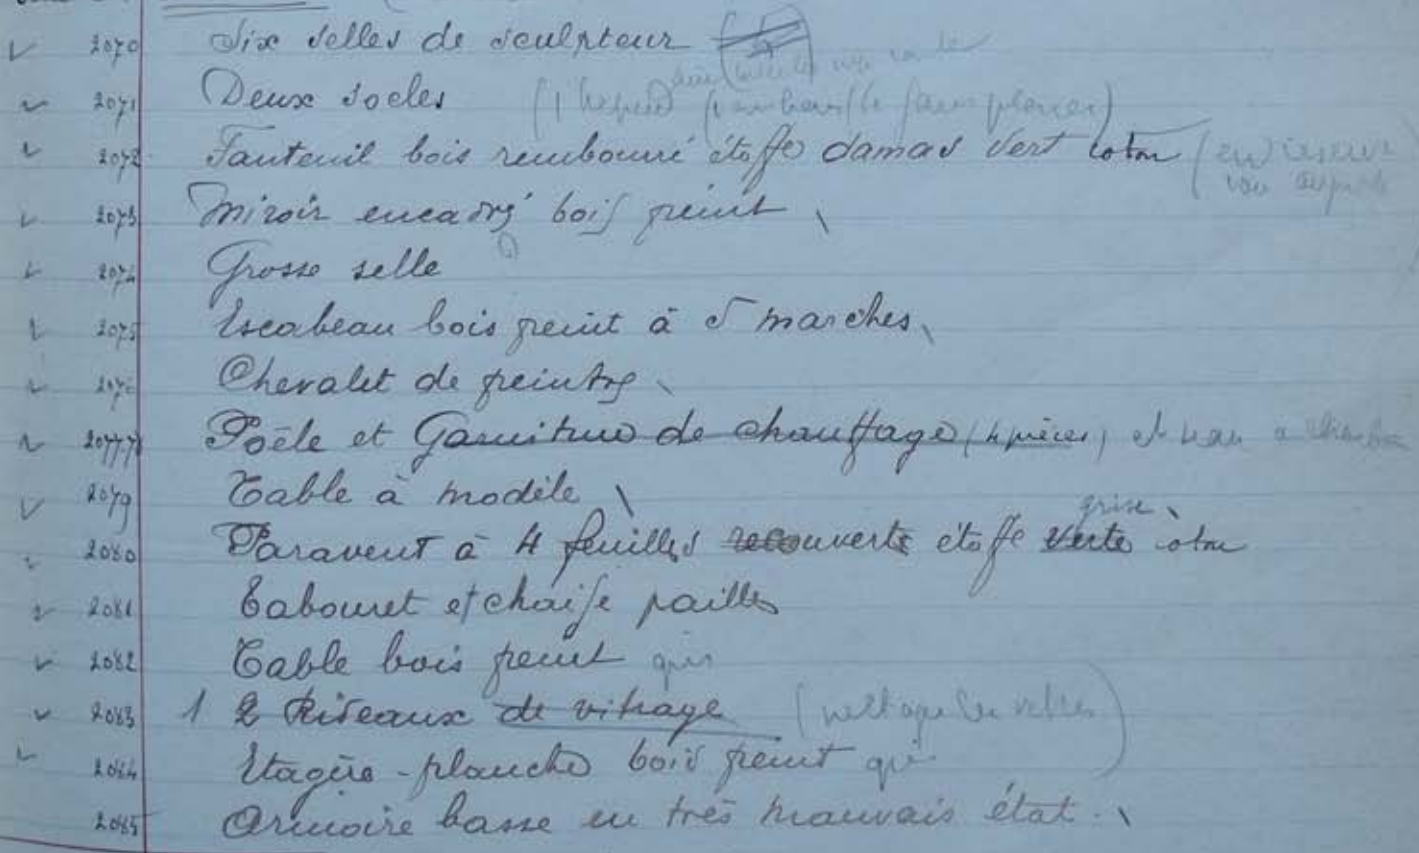 2070 Six selles de sculpteur
2071 Deux socles
2072 Fauteuil bois rembourré étoffe damas vert coton
2073 Miroir encadré bois peint
2074 Grosse selle
2075 Escabeau bois peint à 5 marches
2076 Chevalet de peintre
2077 Poêle et Garniture de chauffage (4 pièces) et
2079 Table à modèle
grise
2080 Paravent à 4 feuilles recouverts étoffe verte coton
2081 Tabouret et chaise pailles
2082 Table bois peint gris
2083 1 2 Rideaux de vitrage
2084 Etagère-planche bois peint gris
2085 Armoire basse en très mauvais état.